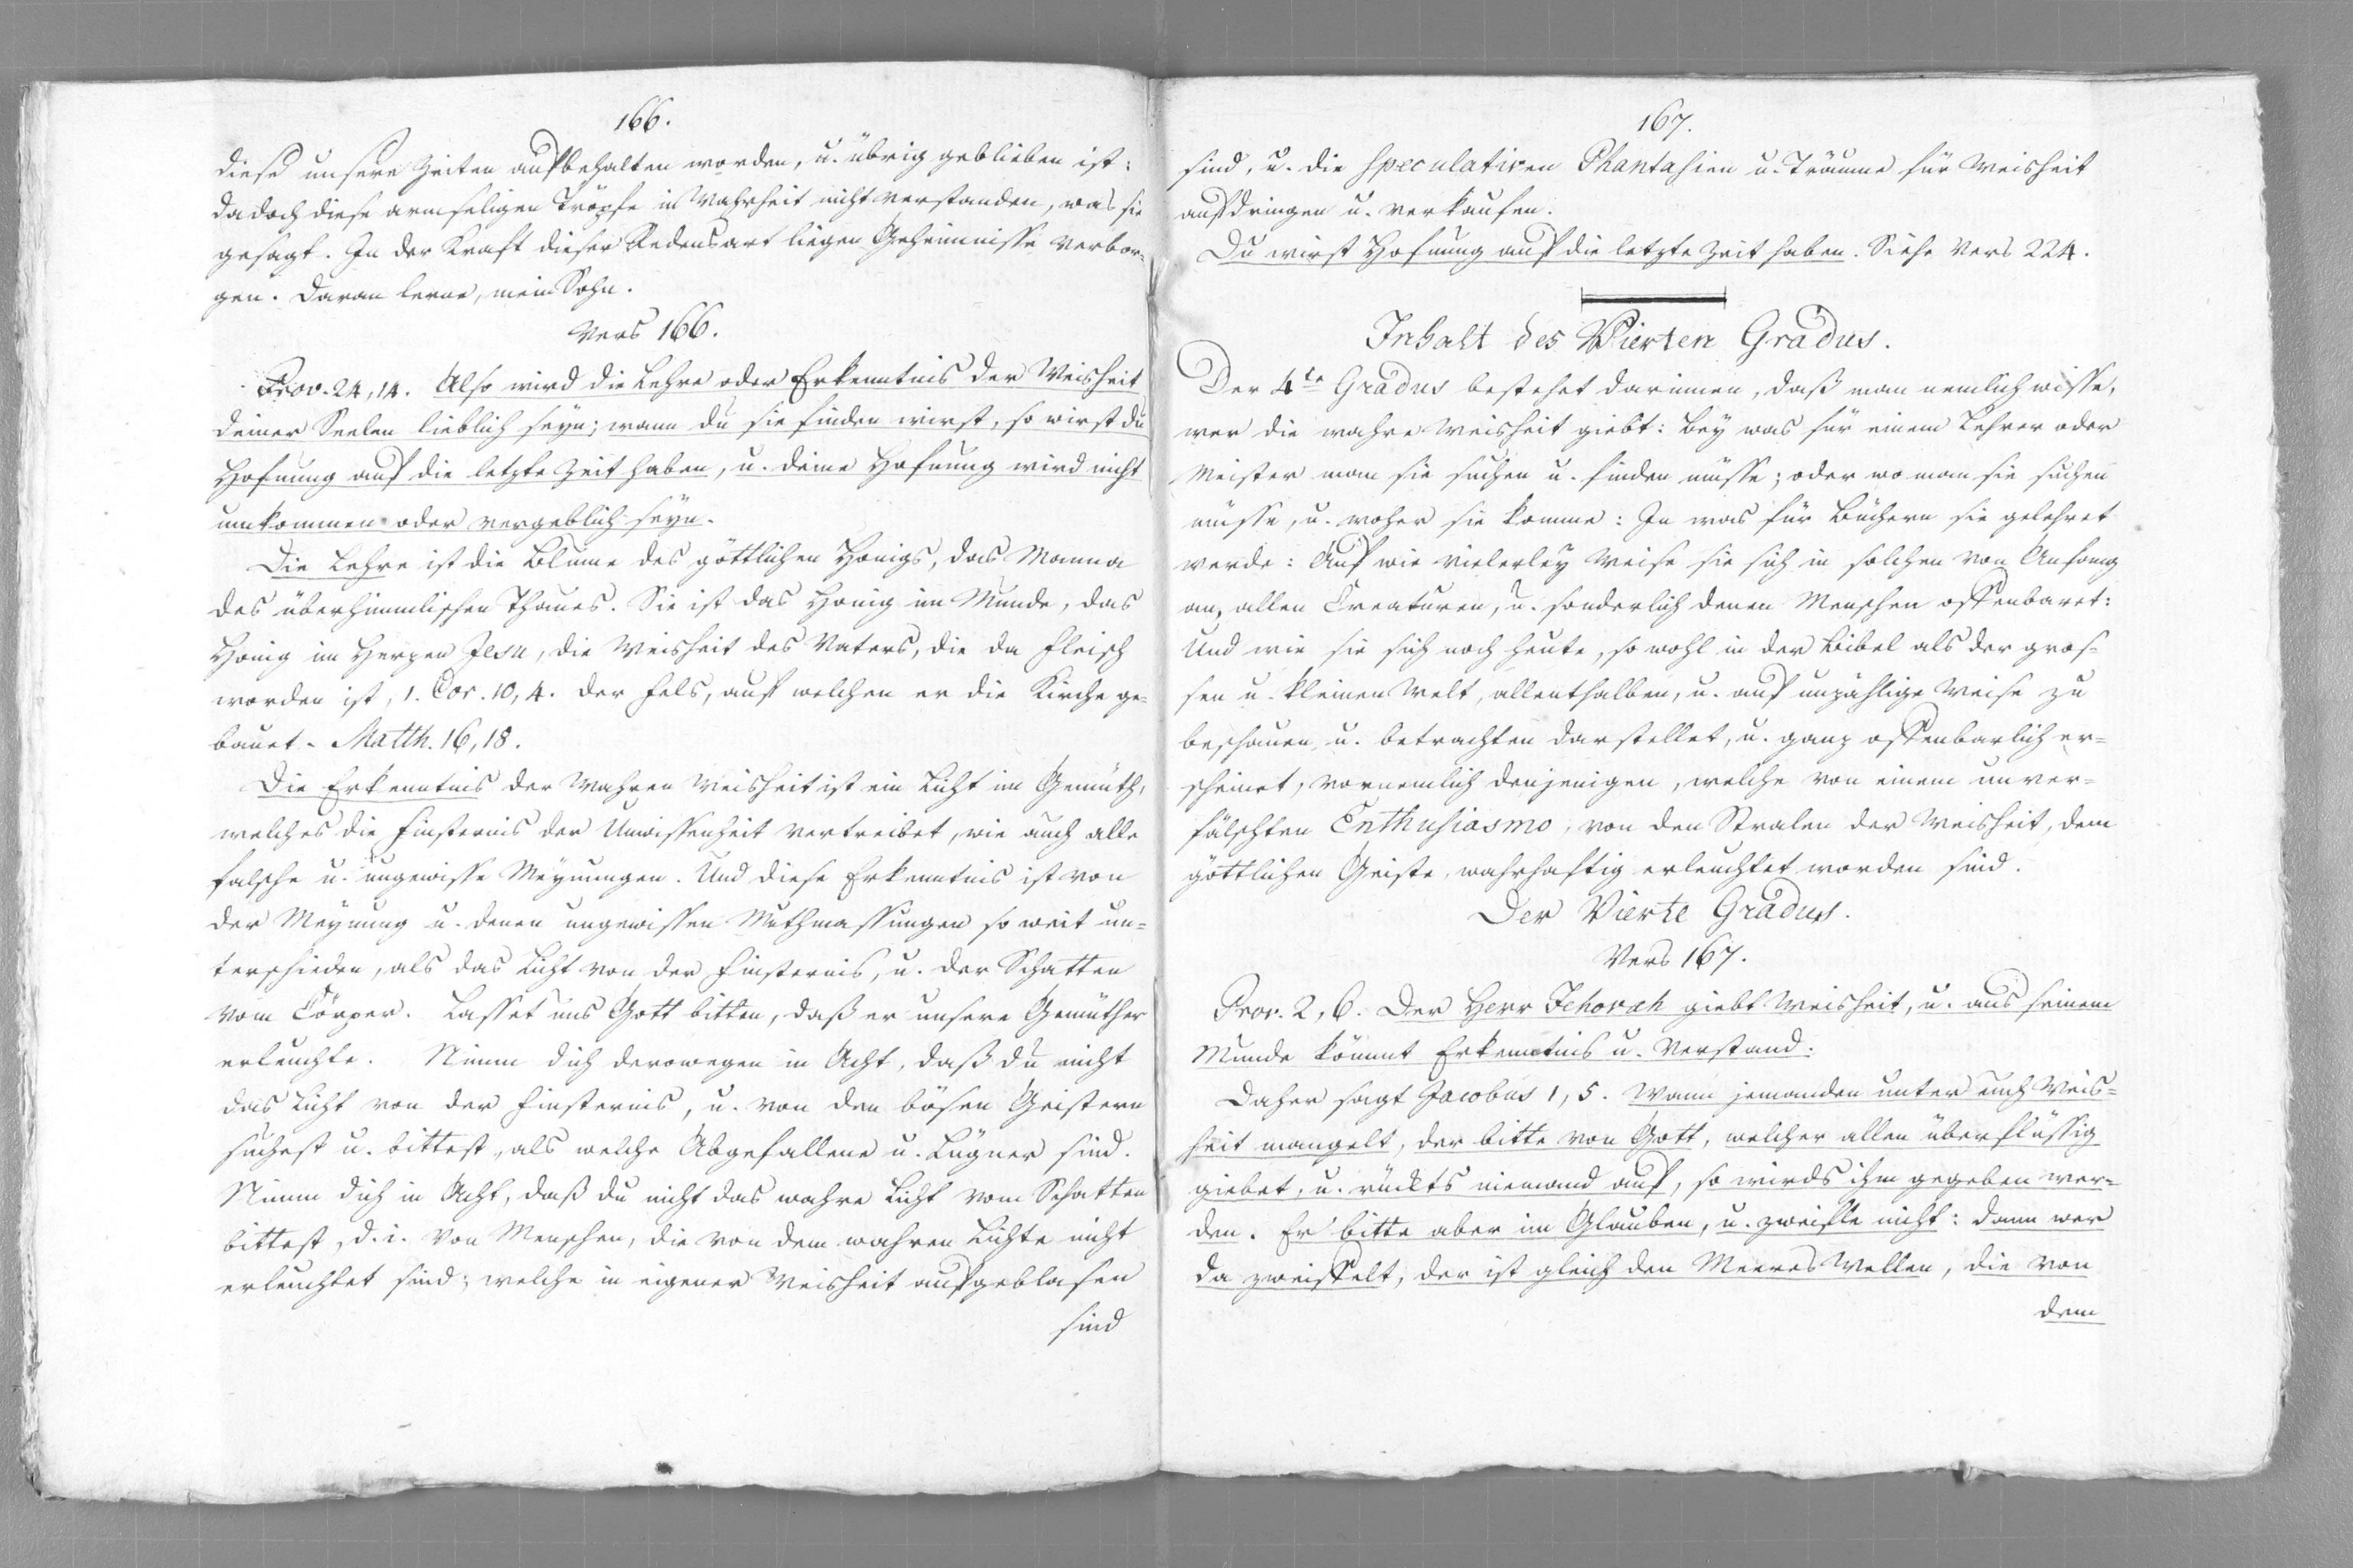 166.
diese unsere Zeiten aufbehalten worden, u. übrig geblieben ist:
da doch diese armseligen Tröpfe in Wahrheit nicht verstanden, was sie
gesagt. In der Kraft dieser Redensart liegen Geheimnisse verbor-
gen. Daran lerne, mein Sohn.
Vers 166.
Prov. 24, 14. Also wird die Lehre oder Erkenntnis der Weisheit
deiner Seelen lieblich seyn; wann du sie finden wirst, so wirst du
Hofnung auf die letzte Zeit haben, u. deine Hofnung wird nicht
umkommen oder vergeblich seyn.
Die Lehre ist die Blume des göttlichen Honigs, das Manna
des überhimmlischen Thaues. Sie ist das Honig im Munde, das
Honig im Herzen Jesu, die Weisheit des Vaters, die da Fleisch
worden ist, 1. Cor. 10, 4. der Fels, auf welchen er die Kirche ge-
bauet. Matth. 16, 18.
Die Erkenntnis der wahren Weisheit ist ein Licht im Gemüth,
welches die Finsternis der Unwissenheit vertreibet, wie auch alle
falsche u. ungewisse Meynungen. Und diese Erkenntnis ist von
der Meynung u. denen ungewissen Muthmassungen so weit un=
terschieden, als das Licht von der Finsternis, u. der Schatten
vom Cörper. Lasset uns Gott bitten, daß er unsere Gemüther
erleuchte. Nimm dich derowegen in Acht, daß du nicht
das Licht von der Finsternis, u. von den bösen Geistern
suchest u. bittest, als welche Abgefallene u. Lügner sind.
Nimm dich in Acht, daß du nicht das wahre Licht vom Schatten
bittest, d. i. von Menschen, die von dem wahren Lichte nicht
erleuchtet sind; welche in eigener Weisheit aufgeblasen
sind
167.
sind, u. die speculativen Phantasien u. Träume für Weisheit
aufdringen u. verkaufen.
Du wirst Hofnung auf die letzte Zeit haben. Siehe Vers 224.
Inhalt des Vierten Gradus.
Der 4te Gradus bestehet darinnen, daß man nemlich wisse,
wer die wahre Weisheit giebt: Bey was für einem Lehrer oder
Meister man sie suchen u. finden müsse; oder wo man sie suchen
müsse, u. woher sie komme: In was für Büchern sie gelehret
werde: Auf wie vielerley Weise sie sich in solchen von Anfang
an, allen Creaturen, u. sonderlich denen Menschen offenbaret:
Und wie sie sich noch heute, so wohl in der Bibel als der gros-
sen u. kleinen Welt, allenthalben, u. auf unzählige Weise zu
beschauen u. betrachten darstellet, u. ganz offenbarlich er=
scheinet, vornemlich denjenigen, welche von einem unver=
fälschten Enthusiasmo, von den Stralen der Weisheit, dem
göttlichen Geiste, wahrhaftig erleuchtet worden sind.
Der Vierte Gradus.
Vers 167.
Prov. 2, 6. Der Herr Jehovah giebt Weisheit, u. aus seinem
Munde kömmt Erkenntnis u. Verstand.
Daher sagt Jacobus 1, 5. Wann jemanden unter euch Weis=
heit mangelt, der bitte von Gott, welcher allen überflüssig
giebet, u. rückts niemand auf, so wirds ihm gegeben wer=
den. Er bitte aber im Glauben, u. zweifle nicht: dann wer
da zweiffelt, der ist gleich den Meeres Wellen, die von
dem